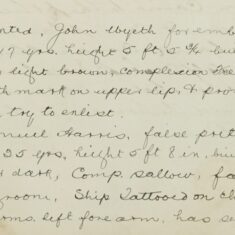 nted, John Wyeth for emb
7 yrs, height 5 ft 5 ¾ bui
light brown, complexion
th mark on upper lip, & pro
try to enlist.
muel Harris, false pret
35 yrs, height 5 ft 8 in, bui
dark, Comp. sallow, fa
groom, Ship Tattooed on ch
rms, left fore arm, has se